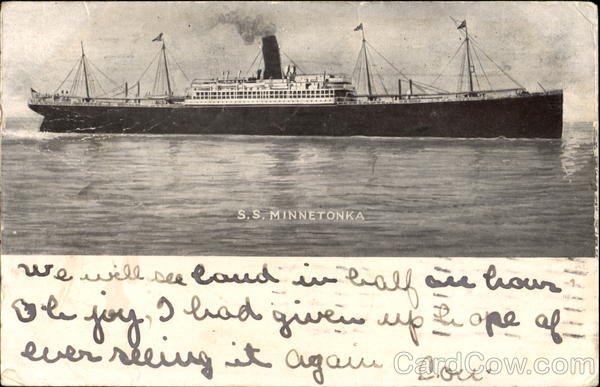 S.S. MINNETONKA
We will see land in half an hour
Oh joy, I had given up hope of
ever seeing it again Lou
CardCow.com